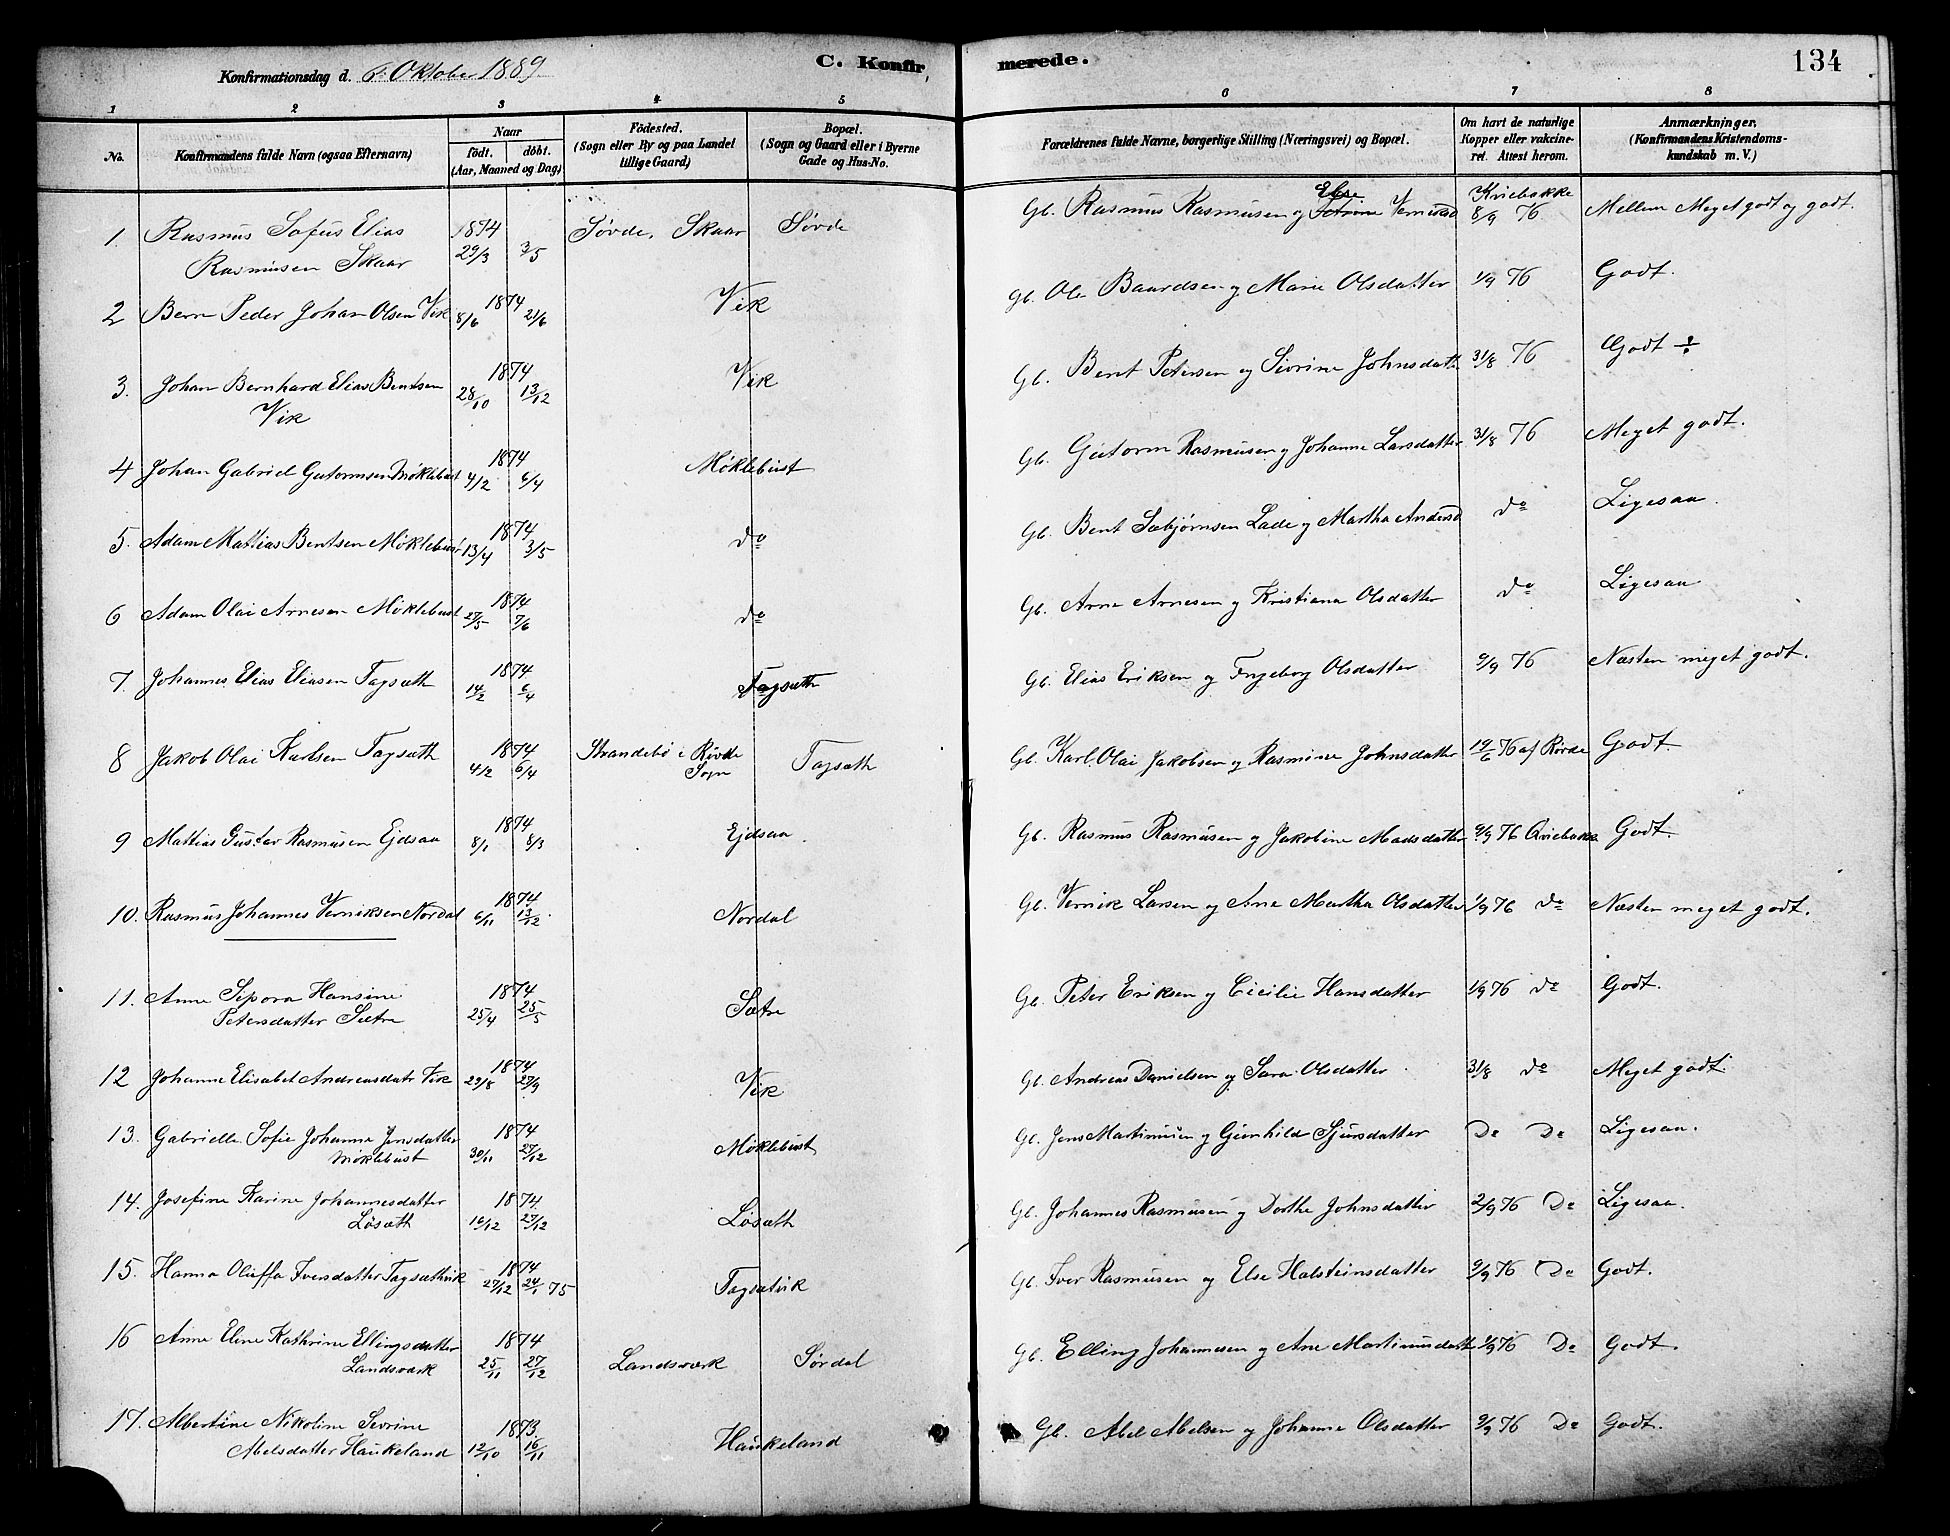 Konfirmationsdag d. 6. Oktober 1889. C. Konfirmerede. 134
1 2 3 4 5 6 7 8
No. Konfirmandens fulde Navn (ogsaa Efternavn) Naar født. døbt. (Aar, Maaned og Dag) Födested. (Sogn eller By og paa Landet tillige Gaard) Bopæl. (Sogn og Gaard eller i Byerne Gade og Hus-No. Forældrenes fulde Navne, borgerlige Stilling (Næringsvei) og Bopæl. Om havt de naturlige Kopper eller vakcineret. Attest herom. Anmærkninger. (Konfirmandens Kristendomskundskab m. V.)
1. Rasmus Sofus Elias 1874 Søvde, Skaar Søvde Gb. Rasmus Rasmusen og Else Kviebakke 8/9 76 Mellem Meget godt og godt.
Rasmusen Skaar 29/3 3/5
2 Bern Peder Johan Olsen Vik 1874 8/6 21/6 Vik Gb. Ole Baardsen og Marie Olsdatter 1/9 76 Godt.
3. Johan Bernhard Elias Bentsen 1874 28/10 13/12 Vik Gb. Bent Petersen og Sivrine Johnsdatt. 31/8 76 Godt ÷
Vik
4 Johan Gabriel Gutormsen Møklebust 1874 4/2 6/4 Møklebust Gb. Gutorm Rasmusen og Johanne Larsdatter 31/8 76 Meget godt.
5. Adam Mattias Bentsen Møklebust 1874 13/4 3/5 do Gb. Bent Sæbjørnsen Lade og Martha Andersd do Ligesaa.
6 Adam Olai Arnesen Møklebust 1874 27/5 7/6 do Gb. Arne Arnesen og Kristiana Olsdatter do Ligesaa
7. Johannes Elias Eliasen Tagsæth 1874 14/2 6/4 Tagsæth Gb. Elias Eriksen og Ingeborg Olsdatter 9/9 76 Næsten meget godt.
8 Jakob Olai Karlsen Tagsæth 1874 4/2 6/4 Strandebö i Røvde Sogn Tagsæth Gb. Karl Olai Jakobsen og Rasmine Johnsdatter 19/6 76 af Rövde Godt
9 Mattias Gustav Rasmusen Ejdsaa 1874 8/1 8/3 Ejdsaa Gb. Rasmus Rasmusen og Jakobine Madsdatter 9/9 76 Qviebakke Godt.
10. Rasmus Johannes Verniksen Nordal 1874 6/11 13/12 Nordal Gb. Vernik Larsen og Ane Martha Olsdatter 1/9 76 do Næsten meget godt.
11. Anne Sipora Hansine 1874 Sætre Gb. Peter Eriksen og Cicilie Hansdatter 1/9 76 do Godt.
Petersdatter Sætre 25/4 25/5
12 Johanne Elisabet Andreasdatr Vik 1874 29/8 27/9 Vik Gb. Andreas Danielsen og Sara Olsdatter 31/8 do Meget godt
13. Gabrielle Sofie Johanna Jensdatter 1874 Møklebust Gb. Jens Martinusen og Gunhild Sjursdatter Do Do Ligesaa.
Møklebust 30/11 27/12
14. Josefine Karine Johannesdatter 1874. Løsæth Gb. Johannes Rasmusen og Dorthe Johnsdatter 2/9 76 Do Ligesaa.
Løsæth 10/12 27/12
15. Hanna Oluffa Iversdatter Tagsæthvik 1874 27/12 24/1 75 Tagsætvik Gb. Iver Rasmusen og Else Halsteinsdatter 9/9 76 Do Godt.
16 Anne Eline Kathrine Ellingsdatter 1874 Landsværk Sørdal Gb. Elling Johannesen og Ane Martinusdatt 1/9 76 Do Godt.
Landsværk 25/11 27/12
17. Albertine Nikoline Sevrine 1873. Haukeland Gb. Abel Abelsen og Johanne Olsdatter 9/9 76 Do Godt.
Abelsdatter Haukeland 12/10 16/11